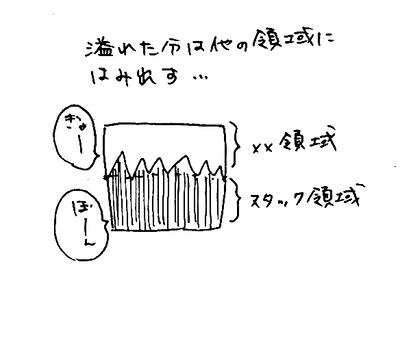 溢れた分は他の領域に
はみ出す...
ぎゅー
xx 領域
ばーん
スタック領域